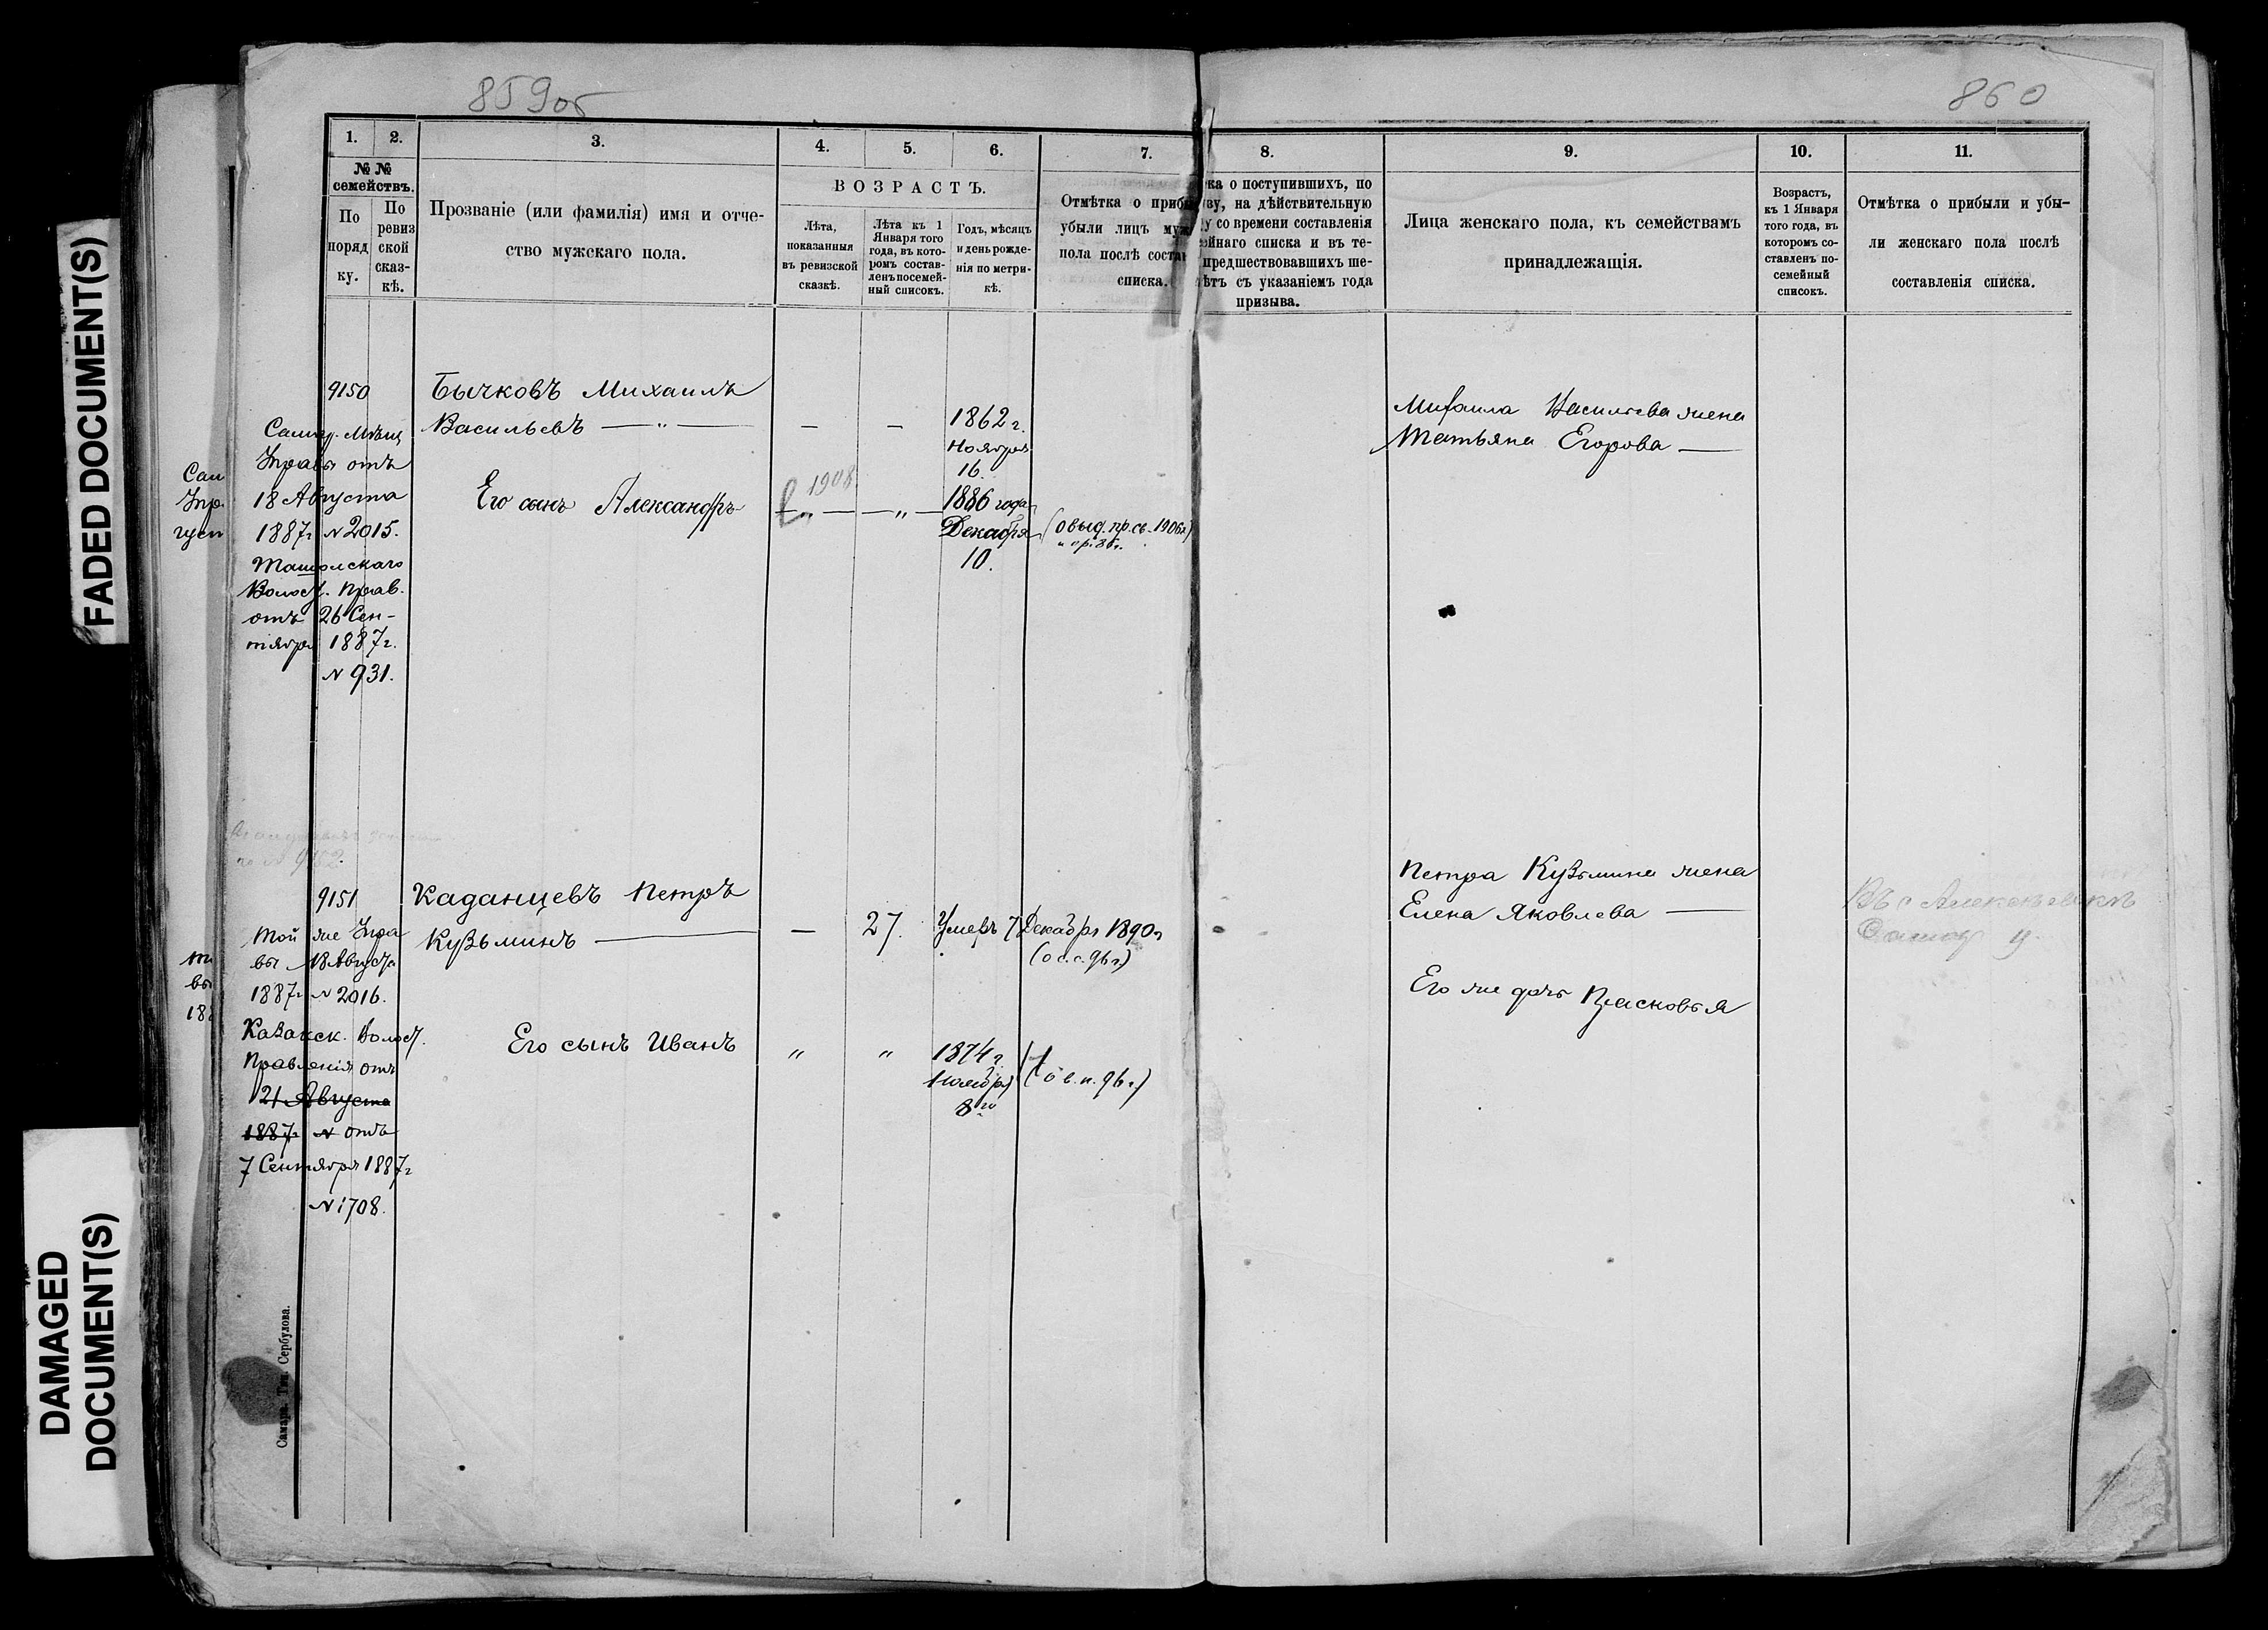 FADED DOCUMENT(S)
DAMAGED
DOCUMENT(S)
859об
860
1.
2.
3.
4.
5.
6.
7.
8.
9.
10.
11.
№ №
семействъ.
По
поряд
ку.
По
ревиз
ской
сказ-
кѣ.
Прозваніе (или фамилія) имя и отче-
ство мужскаго пола.
ВОЗРАСТЪ.
Лѣта,
показанныя
въ ревизской
сказкѣ.
Лѣта къ 1
Января того
года, въ кото-
ромъ состав-
ленъ посемей-
ный списокъ.
Годъ, мѣсяцъ
и день рожде-
нія по метри-
кѣ.
Отмѣтка о прибы
убыли лицъ муж
пола послѣ состав
списка.
ка о поступившихъ, по
ву, на дѣйствительную
у со времени составленія
ейнаго списка и въ те-
предшествовавшихъ ше-
ѣтъ съ указаніемъ года
призыва.
Лица женскаго пола, къ семействамъ
принадлежащія.
Возрастъ,
къ 1 Января
того года, въ
которомъ со-
ставленъ по-
семейный
списокъ.
Отмѣтка о прибыли и убы-
ли женскаго пола послѣ
составленія списка.
9150
Самар. Мѣщ
Управы отъ
18 Августа
1887г №2015.
Волост. Прав.
отъ 26 Сен-
тября 1887г.
№931.
Бычковъ Михаилъ
Васильевъ — " —
— —
1862 г.
Ноября
16.
Его сынъ Александръ
1908
— " — — " —
1886 года
Декабря
10.
1906г)
Михаила Васильева жена
Татьяна Егорова —
9151
Той же Упра
вы 18 Августа
1887г №2016.
Казакск. Волост.
Правленія отъ
21 Августа
1887г № отъ
7 Сентября 1887г
№1708.
Каданцевъ Петръ
Кузьминъ —
—
27.
Умеръ 7 Декабря 1890г
(о с.с. 96г.)
Его сынъ Иванъ
" "
1874 г.
Ноября
8го
(о в.п. 96г.)
Петра Кузьмина жена
Елена Яковлева —
Его же дочь Прасковья
Въ с Алексѣевкѣ
Самар у.
Сам
Упр.
густ
вы
188
Самара. Тип. Сербулова.